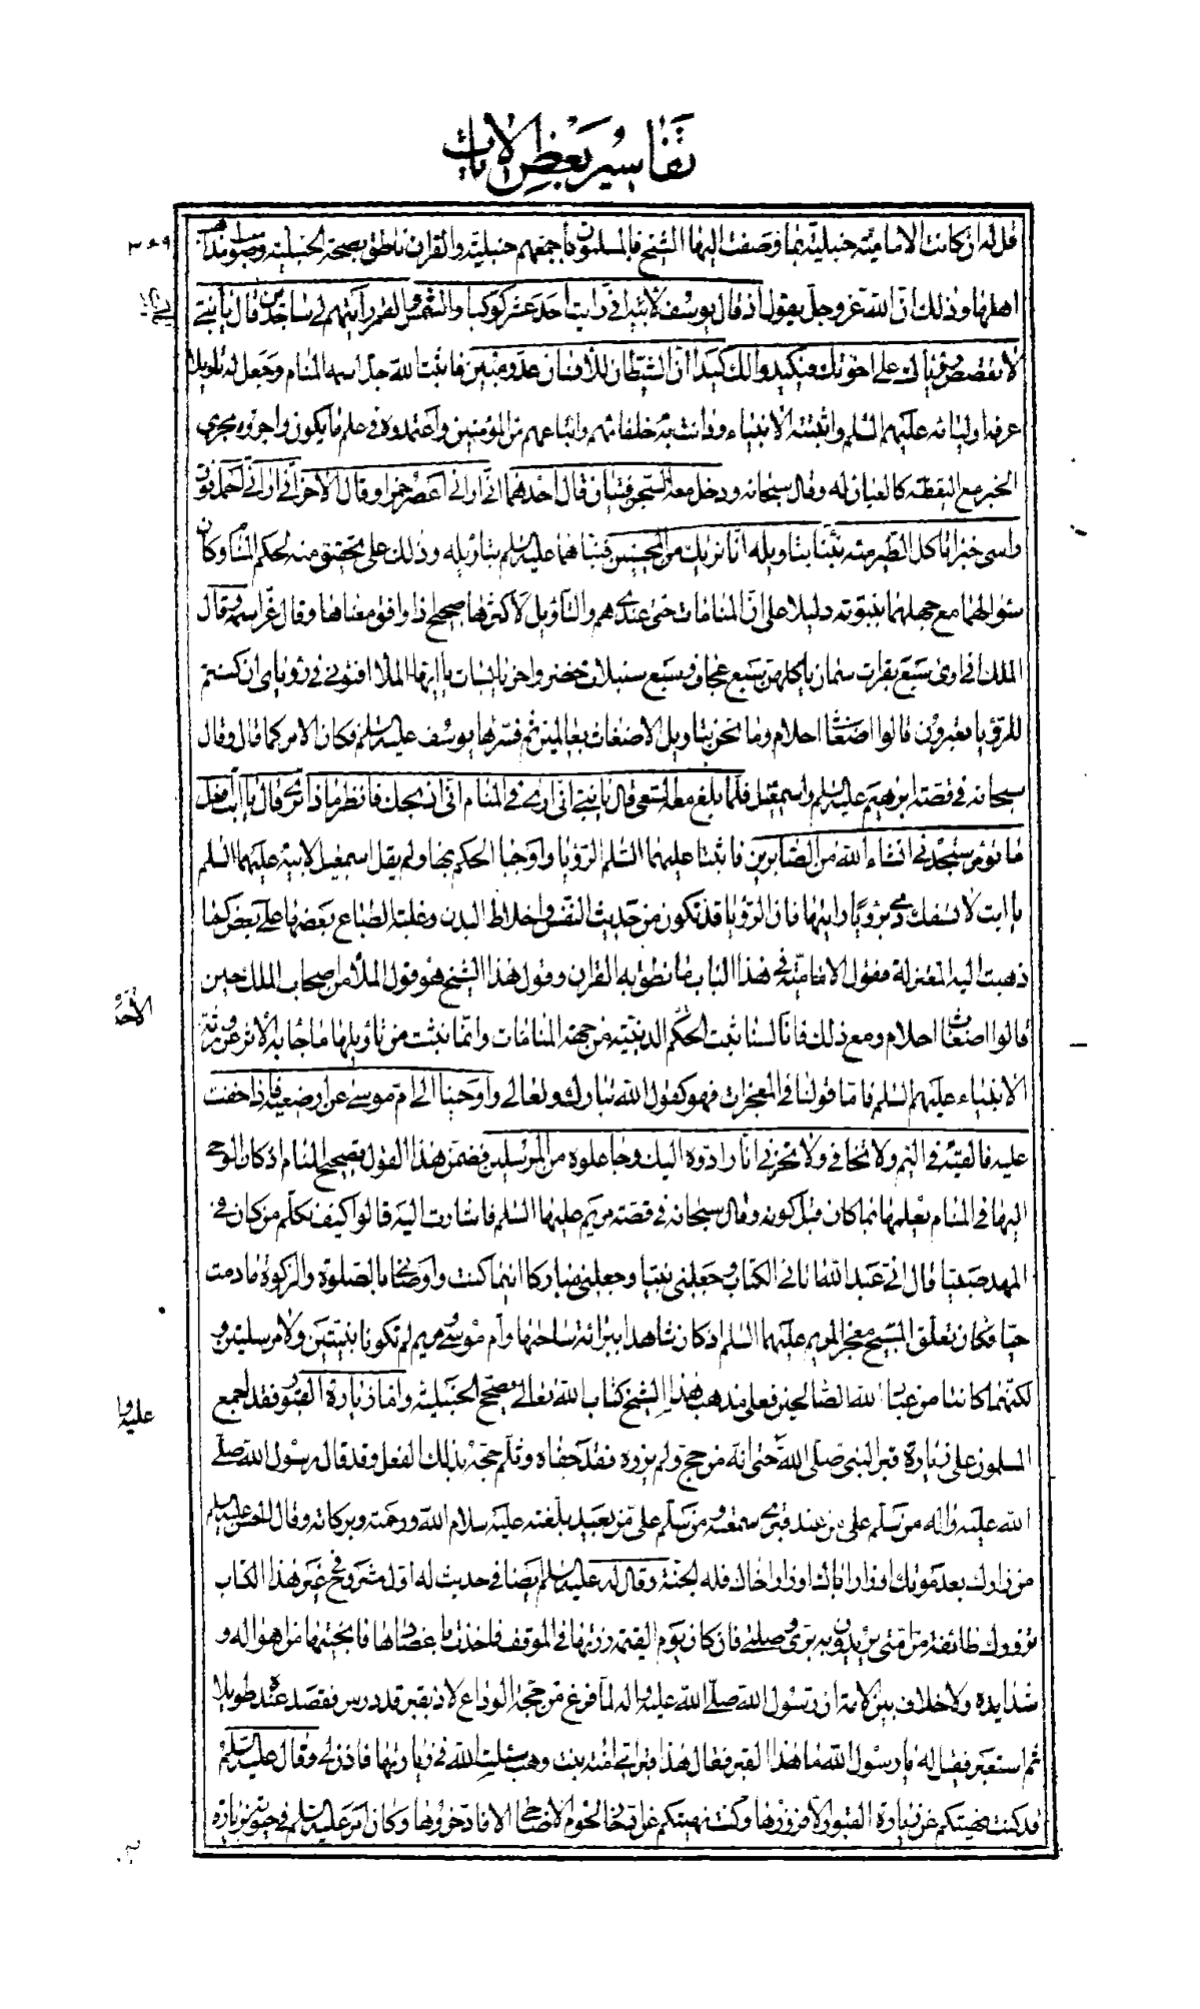 تفاسير بعض الايات
قل له ان كانت الامامية حنبلية بما وصفت اليها الشيخ فالمسلمون باجمعهم حنبلية والقران ناطق بصحة الحنبلية وصواب مذاهب
٣٤٩
اهلها وذلك ان الله عز وجل يقول اذ قال يوسف لابيه اني رايت احد عشر كوكبا والشمس والقمر رايتهم لي ساجدين قال يا بني
لا تقصص رؤياك على اخوتك فيكيدوا لك كيدا ان الشيطان للانسان عدو مبين فاثبت الله جل اسمه المنام وجعل له تاويلا
عرفه اوليائه عليهم السلم واثبته الانبياء ودانت به خلفائهم واتباعهم من المؤمنين واعتمدوه في علم ما يكون واجروه مجرى
الخبر مع اليقظة كالعيان له وقال سبحانه ودخل معه السجن فتيان قال احدهما اني اراني اعصر خمرا وقال الاخر اني اراني احمل فوق
راسي خبزا تاكل الطير منه نبئنا بتاويله انا نريك من المحسنين فنباهما عليه السلم بتاويله وذلك على تحقيق منه لحكم المنام وكان
سؤالهما مع جهلهما بنبوته دليلا على ان المنامات حق عندهم والتاويل لاكثرها صحيح اذا وافق معناها وقال عز اسمه وقال
الملك اني ارى سبع بقرات سمان ياكلهن سبع عجاف وسبع سنبلات خضر واخر يابسات يا ايها الملا افتوني في رؤياي ان كنتم
للرؤيا تعبرون قالوا اضغاث احلام وما نحن بتاويل الاضغاث بعالمين ثم فسرها يوسف عليه السلم فكان الامر كما قال وقال
سبحانه في قصة ابرهيم عليه السلم واسمعيل فلما بلغ معه السعي قال يا بني اني ارى في المنام اني اذبحك فانظر ماذا ترى قال يا ابت افعل
ما تؤمر ستجدني انشاء الله من الصابرين فاثبتا عليهما السلم الرؤيا واوجبا الحكم بها ولم يقل اسمعيل لابيه عليهما السلم
يا ابت لا تسفك دمي برؤيا رايتها فان الرؤيا قد تكون من حديث النفس واخلاط البدن وغلبة الطباع بعضها على بعض كما
ذهبت اليه المعتزلة فقول الامامية في هذا الباب ما نطق به القران وقول هذا الشيخ هو قول الملا من اصحاب الملك حين
قالوا اضغاث احلام ومع ذلك فانا لسنا نثبت الحكم الدينية من جهة المنامات وانما نثبت من تاويلها ما جاء به الاثر عن ورثة
الانبياء عليهم السلم فاما قولنا في المعجزات فهو كقول الله تبارك وتعالى واوحينا الى ام موسى ان ارضعيه فاذا خفت
عليه فالقيه في اليم ولا تخافي ولا تحزني انا رادوه اليك وجاعلوه من المرسلين فضمن هذا القول تصحيح المنام اذ كان الوحي
اليها في المنام بعلمها بما كان قبل كونه وقال سبحانه في قصة مريم عليها السلم فاشارت اليه قالوا كيف نكلم من كان في
المهد صبيا قال اني عبد الله اتاني الكتاب وجعلني نبيا وجعلني مباركا اينما كنت واوصاني بالصلوة والزكوة ما دمت
حيا فكان نطق المسيح معجز لمريم عليهما السلم اذ كان شاهدا ببرائة ساحتها وام موسى ومريم لم تكونا نبيتين ولا مرسلتين و
لكنهما كانتا من عباد الله الصالحين فعلى مذهب هذا الشيخ كتاب الله تعالى يصحح الحنبلية واما زيارة القبور فقد اجمع
المسلمون على زيارة قبر النبي صلى الله حتى انه من حج ولم يزره فقد جفاه وثلم حجه بذلك الفعل وقد قال رسول الله صلى
عليه وا
الله عليه واله من سلم علي من عند قبري سمعته ومن سلم علي من بعيد بلغته عليه سلام الله ورحمته وبركاته وقال للحسن عليه السلم
من زارك بعد موتك او زار اباك او زار اخاك فله الجنة وقال له عليه السلم ايضا في حديث له اول مشروح في غير هذا الكتاب
تزورك طائفة من امتي يريدون به بري وصلتي فان كان يوم القيمة زرتها في الموقف فاخذت باعضادها فانجيتها من اهواله و
شدايده ولا خلاف بين الامة ان رسول الله صلى الله عليه واله لما فرغ من حجة الوداع لاذ بقبر قد درس فقعد عنده طويلا
ثم استعبر فقيل له يا رسول الله ما هذا القبر فقال هذا قبر امي امنة بنت وهب سئلت الله في زيارتها فاذن لي وقال عليه السلم
قد كنت نهيتكم عن زيارة القبور الا فزوروها وكنت نهيتكم عن ادخار لحوم الاضاحي الا فادخروها وكان امر عليه السلم في حيوته بزيارة